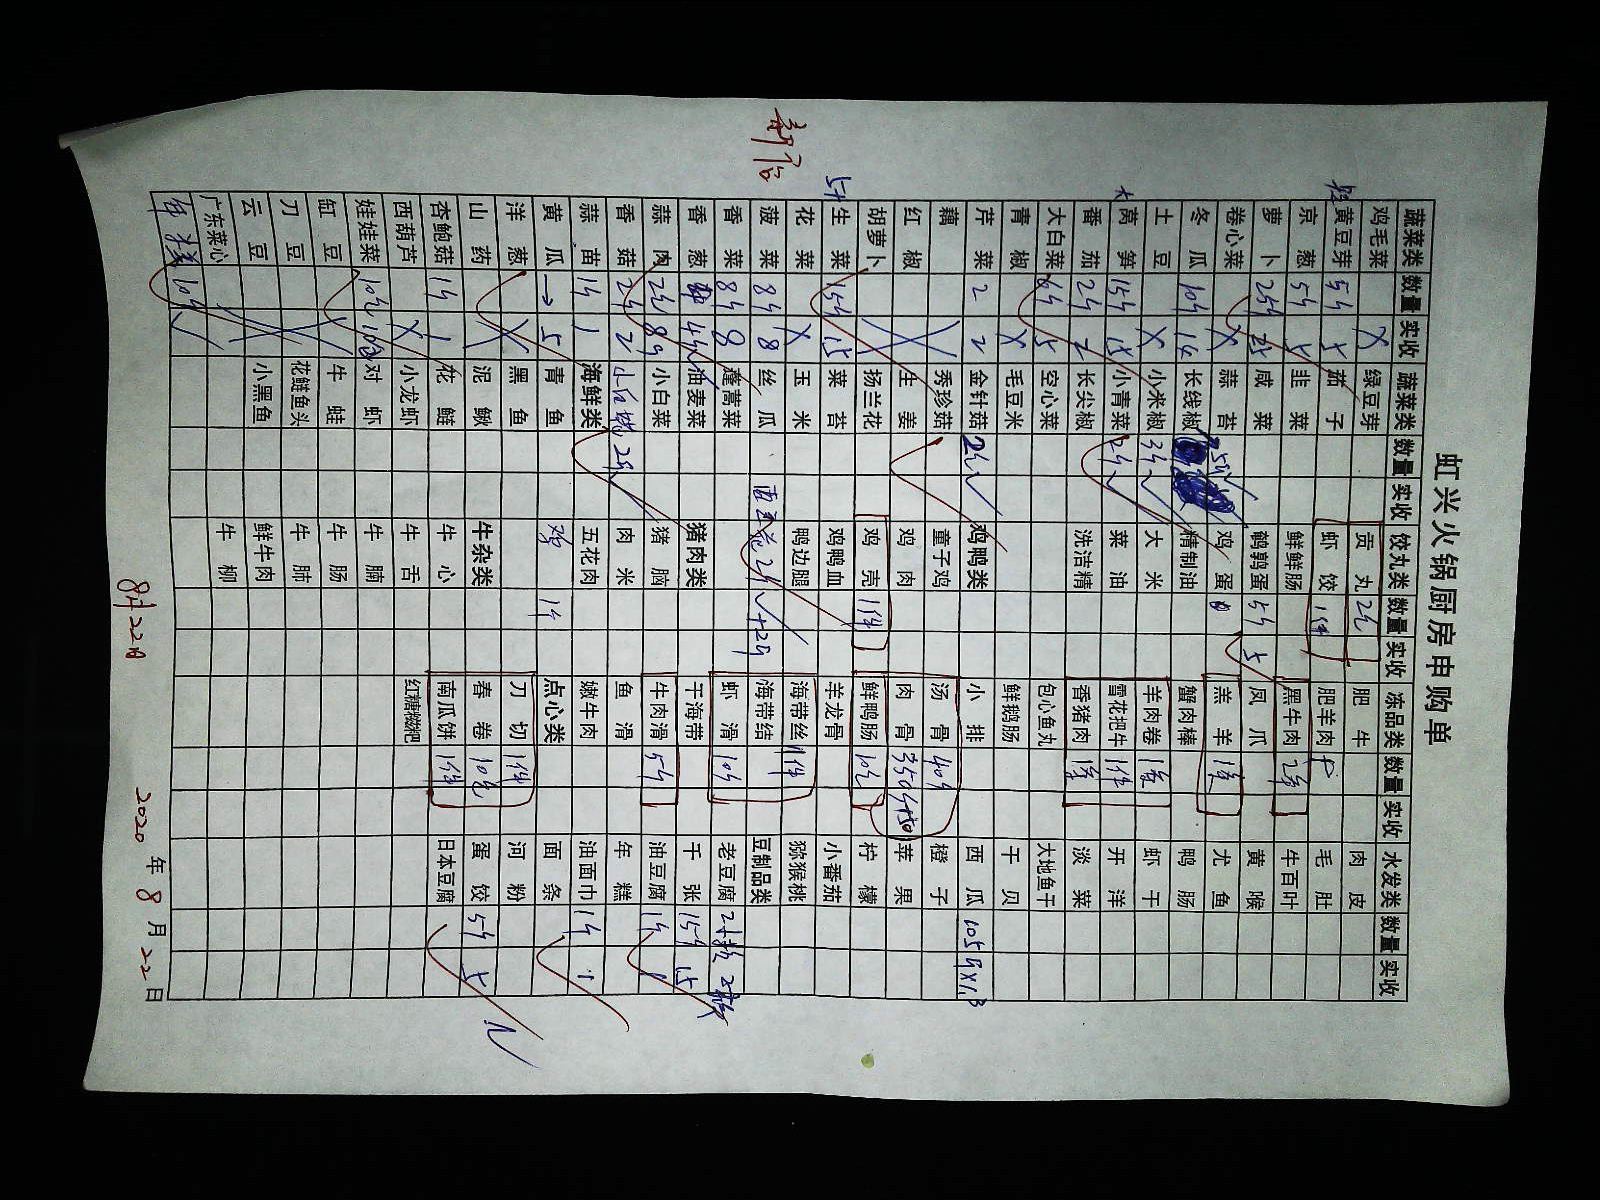 虹兴火锅厨房申购单
新店
蔬菜类 数量 实收 蔬菜类 数量 实收 饺丸类 数量 实收 冻品类 数量 实收 水发类 数量 实收
鸡毛菜 X 绿豆芽 贡丸 2包 肥牛 肉皮
黄豆芽 5斤 5 茄子 虾饺 1件 肥羊肉 毛肚
京葱 5斤 5 韭菜 鲜鲜肠 黑牛肉 牛百叶
萝卜 25斤 25 咸菜 鹌鹑蛋 5斤 5 凤爪 黄喉
卷心菜 X 蒜苔 鸡蛋 羔羊 尤鱼
冬瓜 10斤 长线椒 精制油 蟹肉棒 鸭肠
土豆 X 小米椒 3斤 大米 羊肉卷 虾干
大 莴笋 15斤 15 小青菜 2斤 菜油 雪花把牛 1件 开洋
番茄 2斤 2 长尖椒 洗洁精 香猪肉 淡菜
大白菜 6斤 5 空心菜 包心鱼丸 大地鱼干
青椒 X 毛豆米 鲜鹅肠 干贝
芹菜 2 2 金针菇 2斤 鸡鸭类 小排 西瓜
藕 秀珍菇 童子鸡 汤骨 40斤 橙子
红椒 生姜 鸡肉 肉骨 苹果
胡萝卜 扬兰花 鸡壳 1件 鲜鸭肠 10包 柠檬
5斤 生菜 15斤 15 菜苔 鸡鸭血 羊龙骨 小番茄
花菜 X 玉米 鸭边腿 海带丝 1件 猕猴桃
菠菜 8斤 8 丝瓜 海带结 豆制品类
香菜 8斤 8 蓬蒿菜 虾滑 10斤 老豆腐
香葱 4斤 油麦菜 猪肉类 干海带 千张 15斤 15
蒜肉 小白菜 猪脑 牛肉滑 5斤 油豆腐 1斤 1
香菇 2斤 2 2斤 肉米 鱼滑 年糕
蒜苗 1斤 1 海鲜类 五花肉 嫩牛肉 油面巾 1斤 1
黄瓜 → 5 青鱼 1斤 点心类 面条
洋葱 X 黑鱼 刀切 1件 河粉
山药 泥鳅 牛杂类 春卷 10包 蛋饺 5斤 5
杏鲍菇 1斤 1 花鲢 牛心 南瓜饼 1件 日本豆腐
西葫芦 X 小龙虾 牛舌 红糖糍粑
娃娃菜 10包 对虾 牛腩
缸豆 牛蛙 牛肠
刀豆 花鲢鱼头 牛肺
云豆 小黑鱼 鲜牛肉
广东菜心 牛柳
10斤
8月22日
2020年8月22日